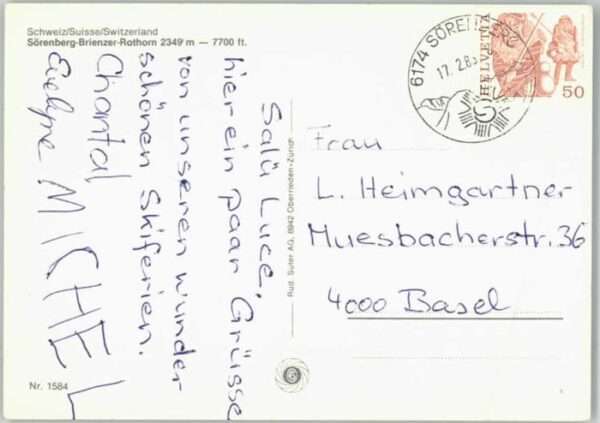 Schweiz/Suisse/Switzerland
Sörenberg-Brienzer-Rothorn 2349 m — 7700 ft.
Salü Luce,
hier ein paar Grüsse
von unseren wunder-
schönen Skiferien.
Chantal
Evelyne MICHEL
Nr. 1584
Rud. Suter AG, 8942 Oberrieden-Zürich
6174 SÖRENBERG
17. 2.8
HELVETIA
50
Frau
L. Heimgartner
Muesbacherstr. 36
4000 Basel